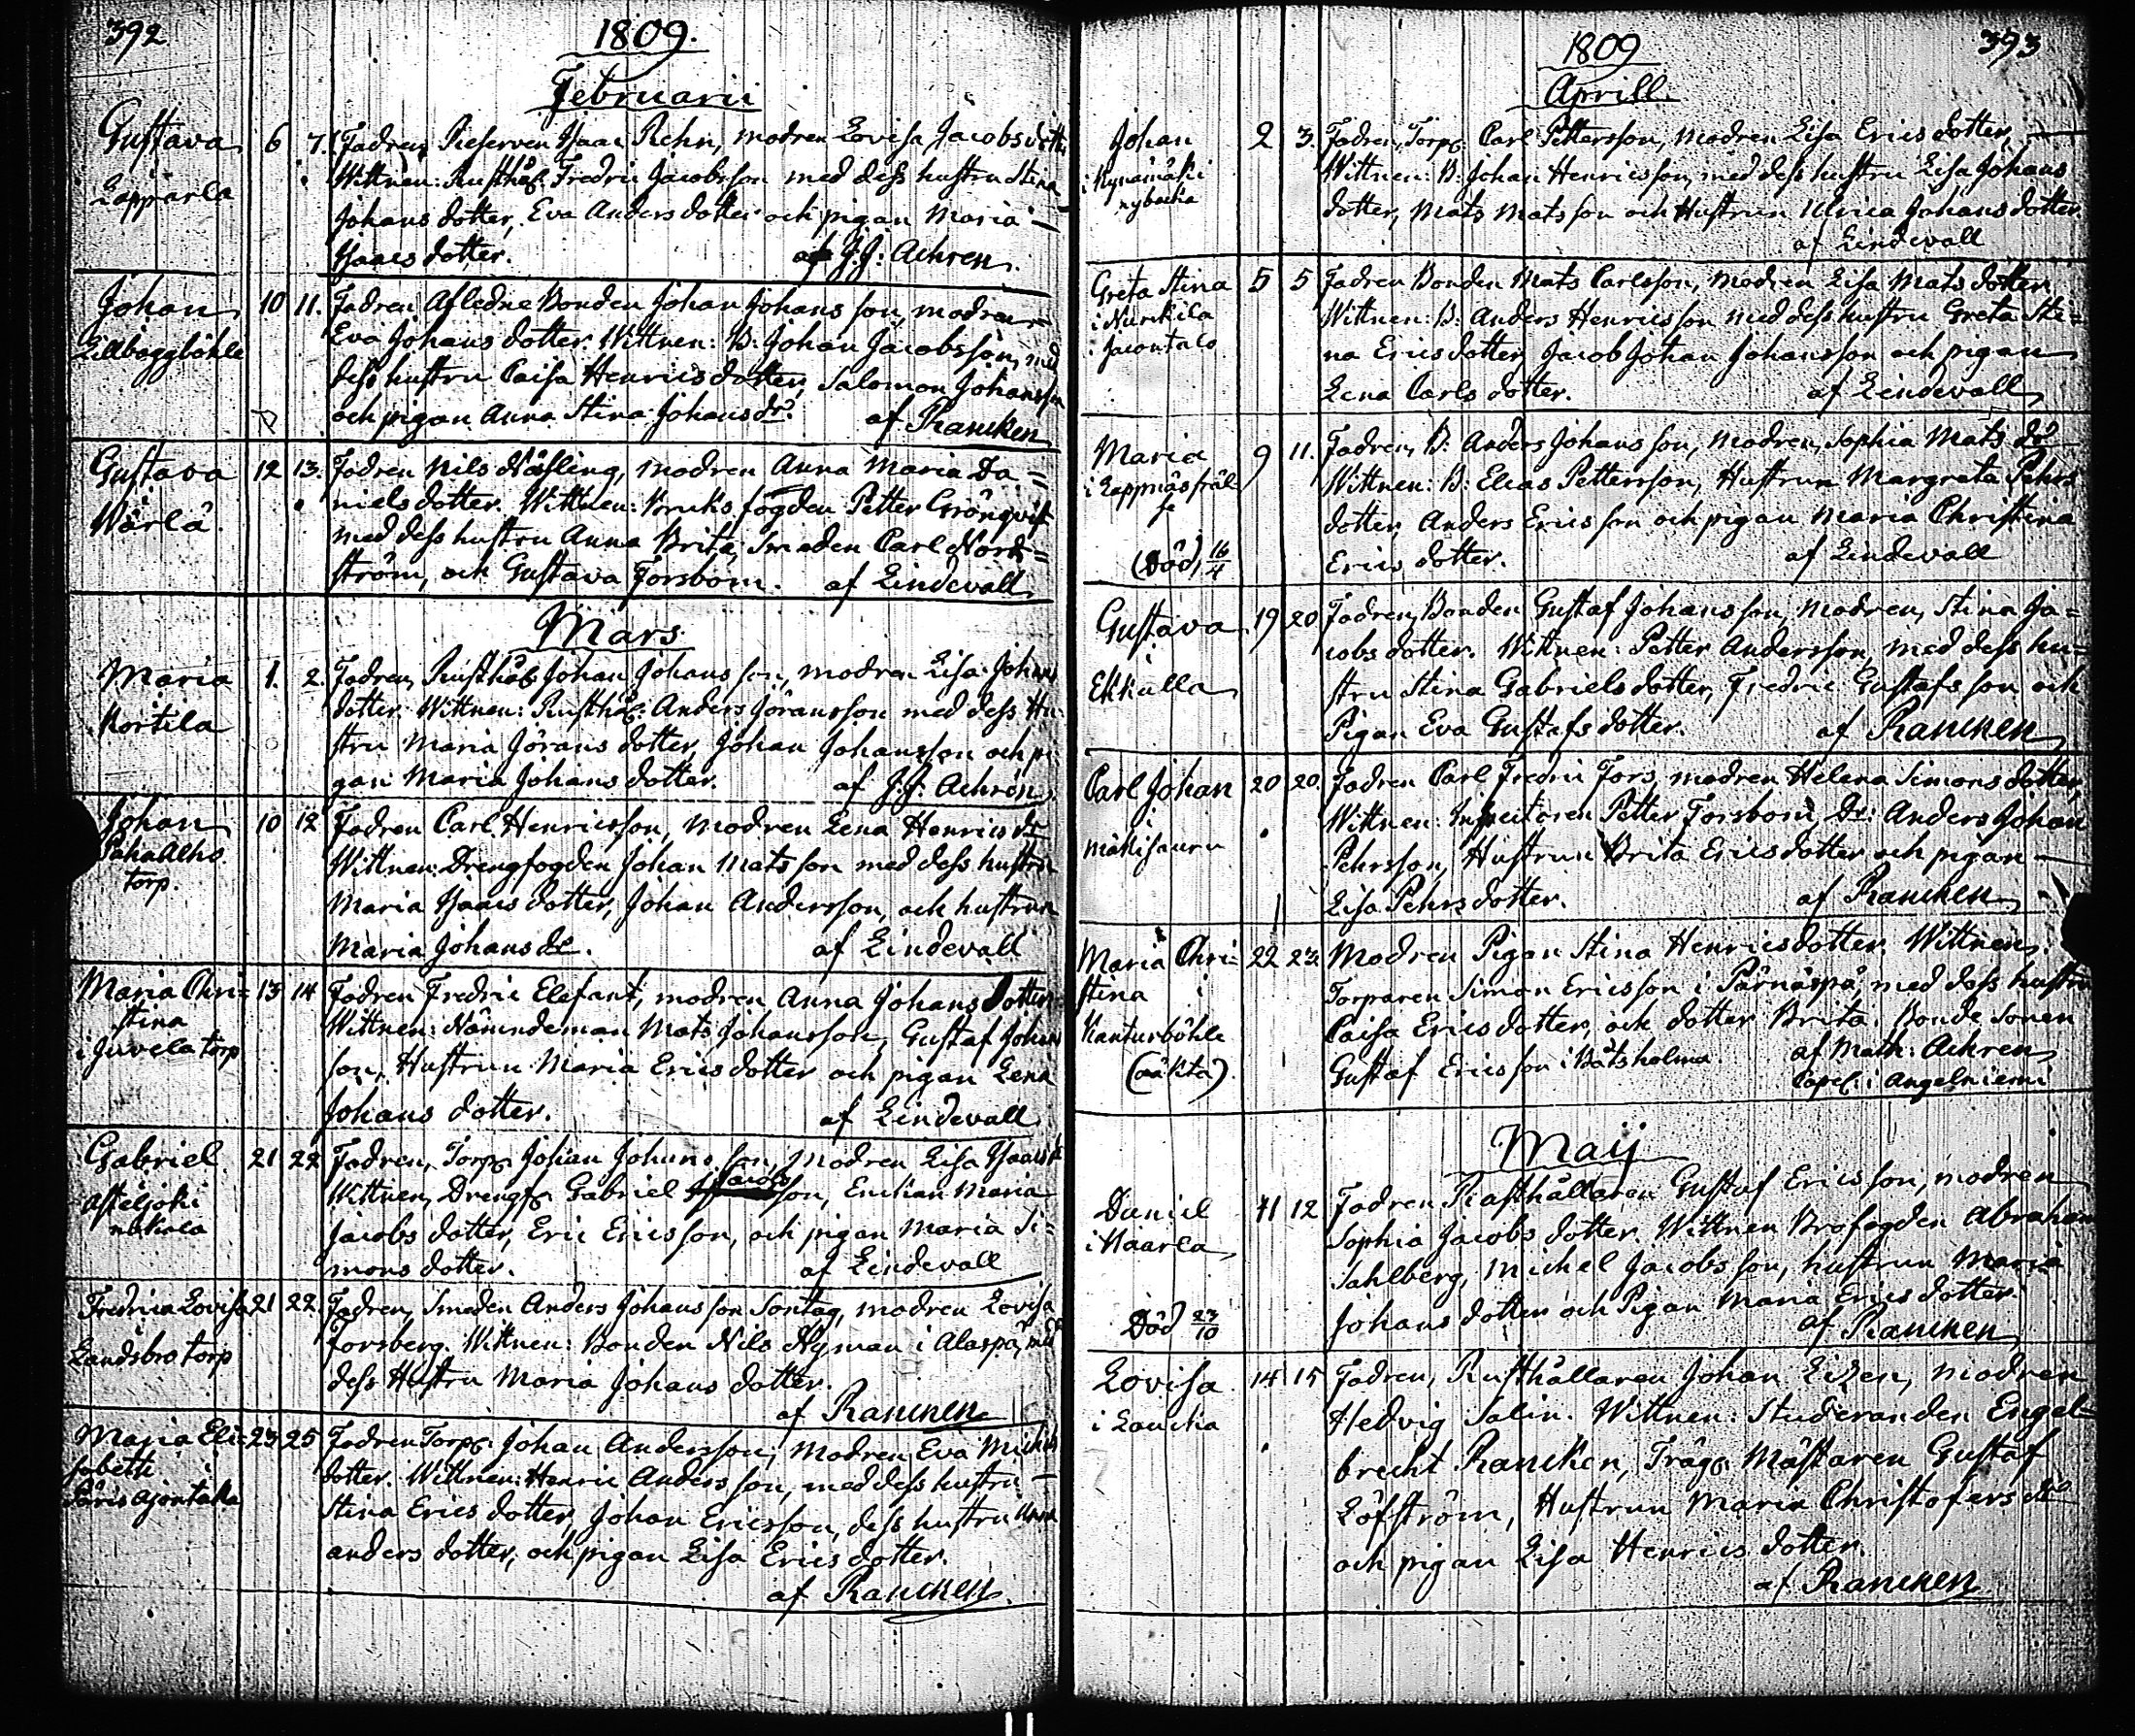 392
1809.
Februarii
Gustava 6 7. Fadren, Reserven Isaac Rehn, modren Lovisa Jacobsdotter
Lapparla Wittnen: Rusthål. Fredric Jacobsson med dess hustru Stina
Johans dotter, Eva Anders dotter och pigan Maria
Isaacs dotter. af J.J: Achren.
Johan 10 11. Fadren Afledne Bonden Johan Johans son, modren
Lillböggböhle Eva Johans dotter. Wittnen: B: Johan Jacobsson, med
dess hustru Caisa Henrics dotter, Salomon Johansson
och pigan Anna Stina Johans dr. af Rancken
Gustava 12 13. Fadren Nils Näsling, modren Anna Maria Da=
Wärlä. niels dotter. Wittnen: Bruks fogden Petter Grönqvist
med dess hustru Anna Brita, Smeden Carl Nord=
ström, och Gustava Forsbom. af Lindevall
Mars
Maria 1. 2. Fadren, Rusthål. Johan Johans son, modren Lisa Johans
Kortila dotter. Wittnen: Rusthål. Anders Jöransson med dess Hu
stru Maria Jörans dotter, Johan Johansson och pi
gan Maria Johans dotter. af J.J: Achrén
Johan 10 12 Fadren Carl Henricsson, Modren Lena Henrics dr
PahaAlho Wittnen: Drengfogden Johan Mats son med dess hustru
torp. Maria Isaacs dotter, Johan Andersson, och hustrun
Maria Johans dr. af Lindevall
Maria Chri= 13 14 Fadren Fredric Elefant, modren Anna Johans Dotter
stina Wittnen: Nämndeman Mats Johansson, Gustaf Johans
i Juvela torp son, Hustrun Maria Erics dotter och pigan Lena
Johans dotter. af Lindevall
Gabriel 21 22 Fadren, Torp. Johan Johans son, Modren Lisa Isaacs dr
Asteljoki Wittnen, Drengf. Gabriel Jacobs son, Enkan Maria
Jacobs dotter, Eric Ericsson, och pigan Maria Si=
mons dotter. af Lindevall
Fredrica Lovisa 21 22. Fadren, Smeden Anders Johans son Sontag, modren Lovisa
Landsbro torp Forsberg. Wittnen: Bonden Nils Nyman i Alaspä, med
dess Hustru Maria Johans dotter.
af Rancken
Maria Eli= 23 25 Fadren Torp. Johan Andersson, Modren Eva Michels
sabetti i dotter. Wittnen: Henric Anders son, med dess hustru
Stina Erics dotter, Johan Ericsson, dess hustru
anders dotter, och pigan Lisa Erics dotter.
af Rancken.
393
1809
Aprill
Johan 2 3. Fadren, Torp. Carl Pettersson, Modren Lisa Erics dotter,
i Kynämäki Wittnen: B: Johan Henricsson, med dess hustru Lisa Johans
nybacka dotter, Mats Mats son och Hustrun Ulrica Johans dotter.
af Lindevall
Greta Stina 5 5 Fadren Bonden Mats Carlsson, Modren Lisa Mats dotter,
i Nurckila Wittnen: B: Anders Henricsson med dess hustru Greta Sti=
na Erics dotter, Jacob Johan Johansson och pigan
Lena Carls dotter. af Lindevall
Maria 9 11. Fadren, B: Anders Johans son, Modren, Sophia Mats dr
i Lappnäs fräl= Wittnen: B: Elias Pettersson, Hustrun Margreta Pehrs
se dotter, Anders Erics son och pigan Maria Christina
(Död, 16/4 Erics dotter. af Lindevall
Gustava 19 20 Fadren, Bonden Gustaf Johansson, Modren, Stina Ja=
i cobs dotter. Wittnen: Petter Andersson, med dess hu=
Ekkulla stru Stina Gabriels dotter, Fredric Gustafs son och
Pigan Eva Gustafs dotter. af Rancken
Carl Johan 20 20. Fadren Carl Fredric Fors, modren Helena Simons dotter,
i Wittnen: Inspectoren Petter Forsbom, Dr: Anders Johan
Mäkisauru Pehrsson, Hustrun Brita Erics dotter och pigan
Lisa Pehrs dotter. af Rancken
Maria Chri= 22 23. Modren Pigan Stina Henrics dotter. Wittnen:
stina i Torparen Simon Ericsson i Pärnäspä, med dess hustru
Kanturböhle Caisa Erics dotter, och dotter Brita. Bonde Sonen
(oäkta). Gustaf Erics son i Båtsholma. af Math: Achren
Capel. i Angelniemi
Maij
Daniel 11 12 Fadren Rusthållaren Gustaf Ericsson, modren
i Naarla Sophia Jacobs dotter. Wittnen Brofogden Abraham
Sahlberg, Michel Jacobs son, hustrun Maria
Johans dotter och Pigan Maria Erics dotter.
Död 23/10 af Rancken
Lovisa 14 15 Fadren, Rusthållaren Johan Lizen, modren
i Laucka Hedvig Salin. Wittnen: Studeranden Engel=
brecht Rancken, Träg. Mästaren Gustaf
Löfström, Hustrun Maria Christofers dr
och pigan Lisa Henrics dotter.
af Rancken